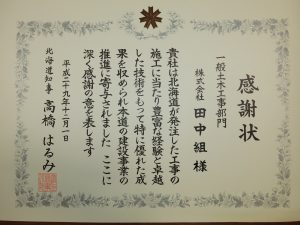 感謝状
一般土木工事部門
株式会社 田中組 様
貴社は北海道が発注した工事の
施工に当たり豊富な経験と卓越
した技術をもって特に優れた成
果を収められ本道の建設事業の
推進に寄与されました ここに
深く感謝の意を表します
平成二十九年十二月一日
北海道知事 高橋はるみ